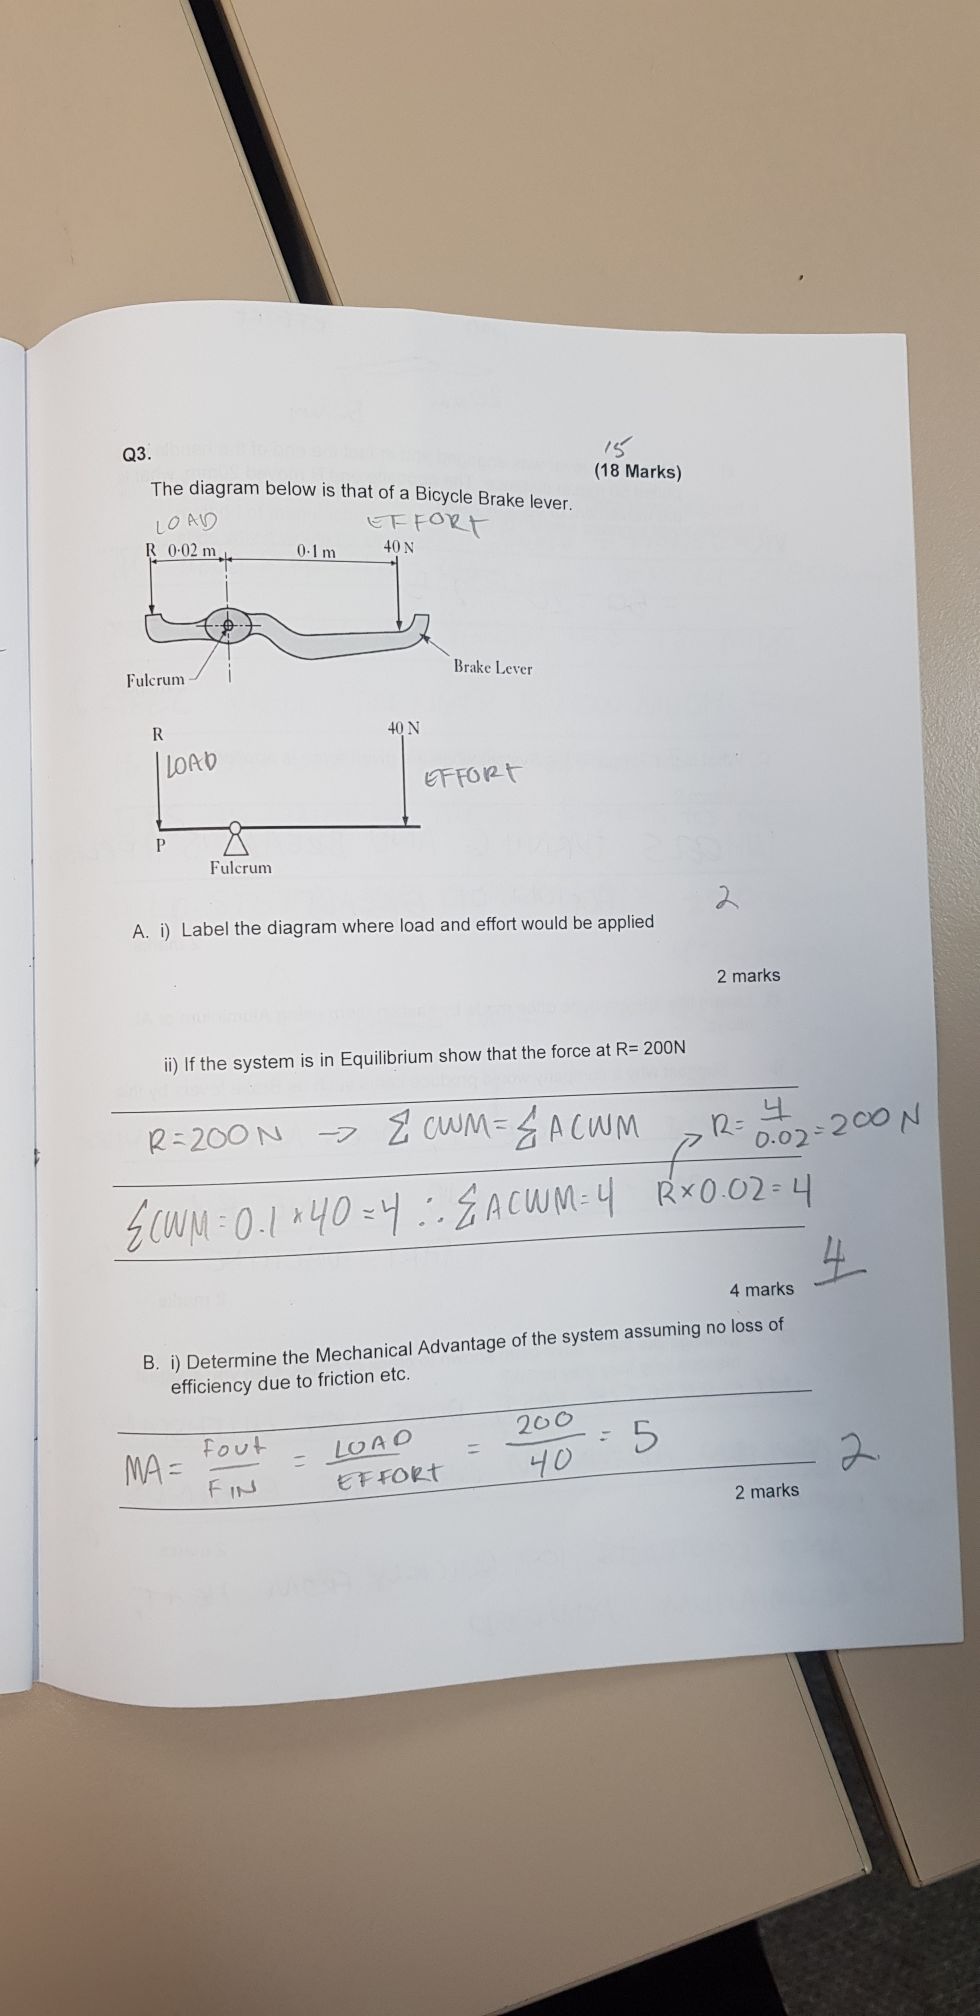 Q3.
15
(18 Marks)
The diagram below is that of a Bicycle Brake lever.
LOAD EFFORT
R 0·02 m 0·1 m 40 N
Fulcrum
Brake Lever
R 40 N
LOAD
EFFORT
P
Fulcrum
2
A. i) Label the diagram where load and effort would be applied
2 marks
ii) If the system is in Equilibrium show that the force at R= 200N
R=200N → Σ CWM = Σ ACWM R= 4/0.02 = 200N
ΣCWM = 0.1 × 40 = 4 ∴ ΣACWM = 4 R×0.02=4
4
4 marks
B. i) Determine the Mechanical Advantage of the system assuming no loss of
efficiency due to friction etc.
MA = Fout/FIN = LOAD/EFFORT = 200/40 = 5
2
2 marks